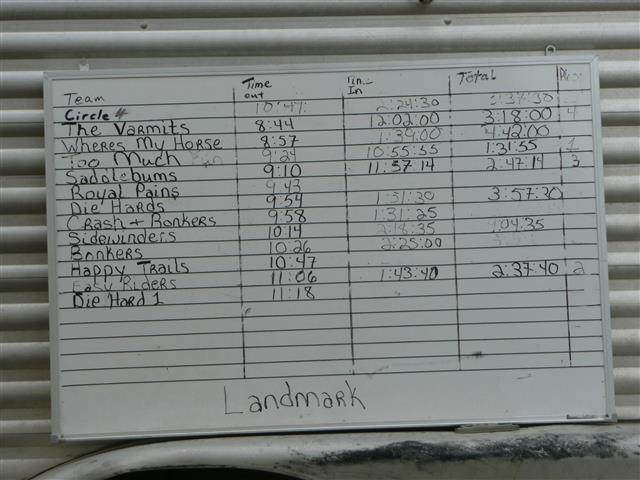 Team Time out Time In Total Place
Circle 4 10:47: 2:24:30 3:37:30
The Varmits 8:44 12:02:00 3:18:00 4
Wheres My Horse 8:57 1:39:00 4:42:00
Too Much Fun 9:24 10:55:55 1:31:55 1
Saddlebums 9:10 11:57:14 2:47:14 3
Royal Pains 9:43
Die Hards 9:54 1:51:30 3:57:30
Crash + Bonkers 9:58 1:31:25
Sidewinders 10:14 2:18:35 4:04:35
Bonkers 10:26 2:25:00
Happy Trails 10:47
Easy Riders 11:06 1:43:40 2:37:40 2
Die Hard 1 11:18
Landmark